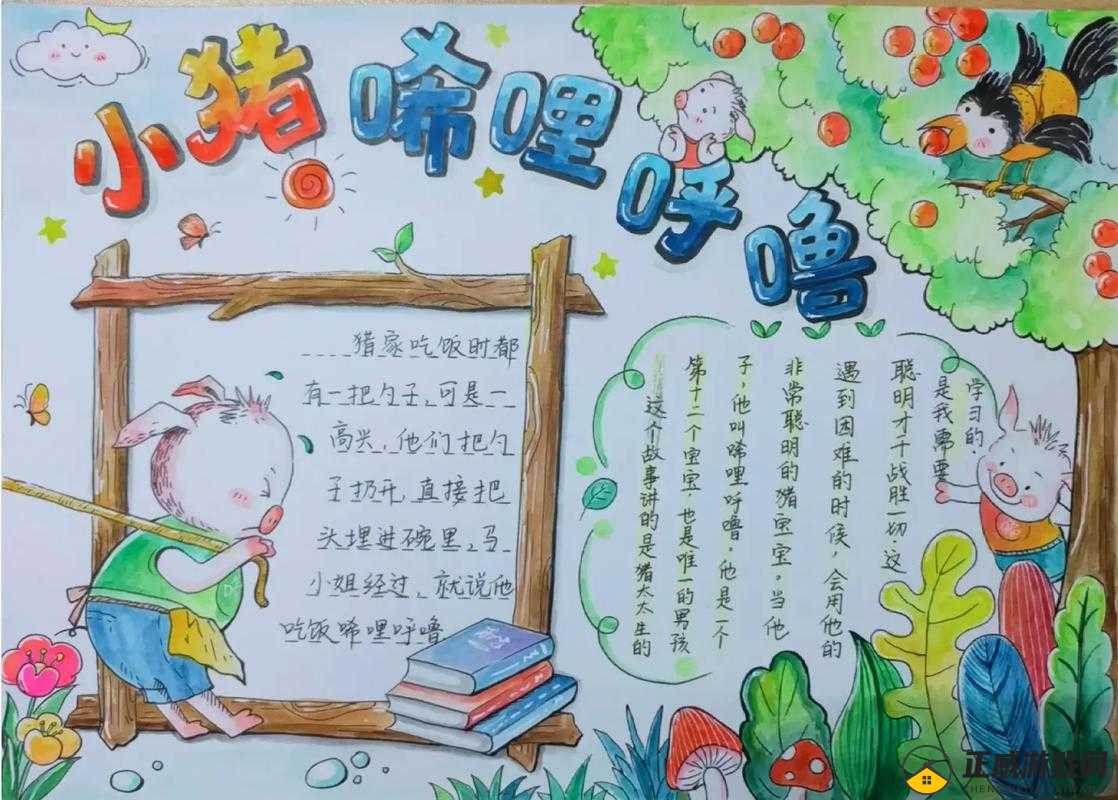 小猪唏哩呼噜
猎家吃饭时都
有一把勺子,可是一
高兴,他们把勺
子扔开,直接把
头埋进碗里,马
小姐经过,就说他
吃饭唏哩呼噜
这个故事讲的是猪太太生的
第十二个宝宝,也是唯一的男孩
子,他叫唏哩呼噜,他是一个
非常聪明的猪宝宝。当他
遇到困难的时候,会用他的
聪明才干战胜一切这
是我需要
学习的.
正威游戏网